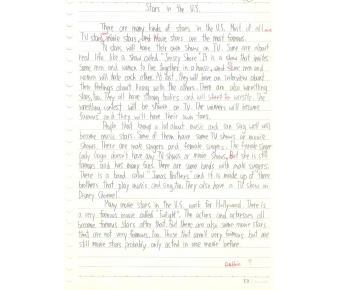 Stars in the U.S.
There are many kinds of stars in the U.S. Most of all are
TV stars, movie stars, and movie stars are the most famous.
TV stars will have their own show on TV. Some are about
real life like a show called "Jersey Shore". It is a show that invites
some men and women to live together in a house, and some men and
women will date each other. At last, they will have an interview about
their feelings about living with the others. There are also wrestling
stars, too. They all have strong bodies and will wrestle. The
wrestling contest will be shown on TV. The winners will become
famous and they will have their own fans.
People that know a lot about music and can sing well will
become music stars. Some of them have some TV shows or movie
shows. There are male singers and female singers. The female singer
Lady Gaga doesn't have any TV shows or movie shows, but she is still
famous and has many fans. There are some bands with male singers.
There is a band called "Jonas Brothers" and it is made up of three
brothers that play music and sing, too. They also have a TV show on
Disney Channel.
Many movie stars in the U.S. work for Hollywood. There is
a very famous movie called "Twilight". The actors and actresses all
become famous stars after that. But there are also some movie stars
that are not very famous, too. Those that aren't very famous but are
still movie stars probably only acted in one movie before.